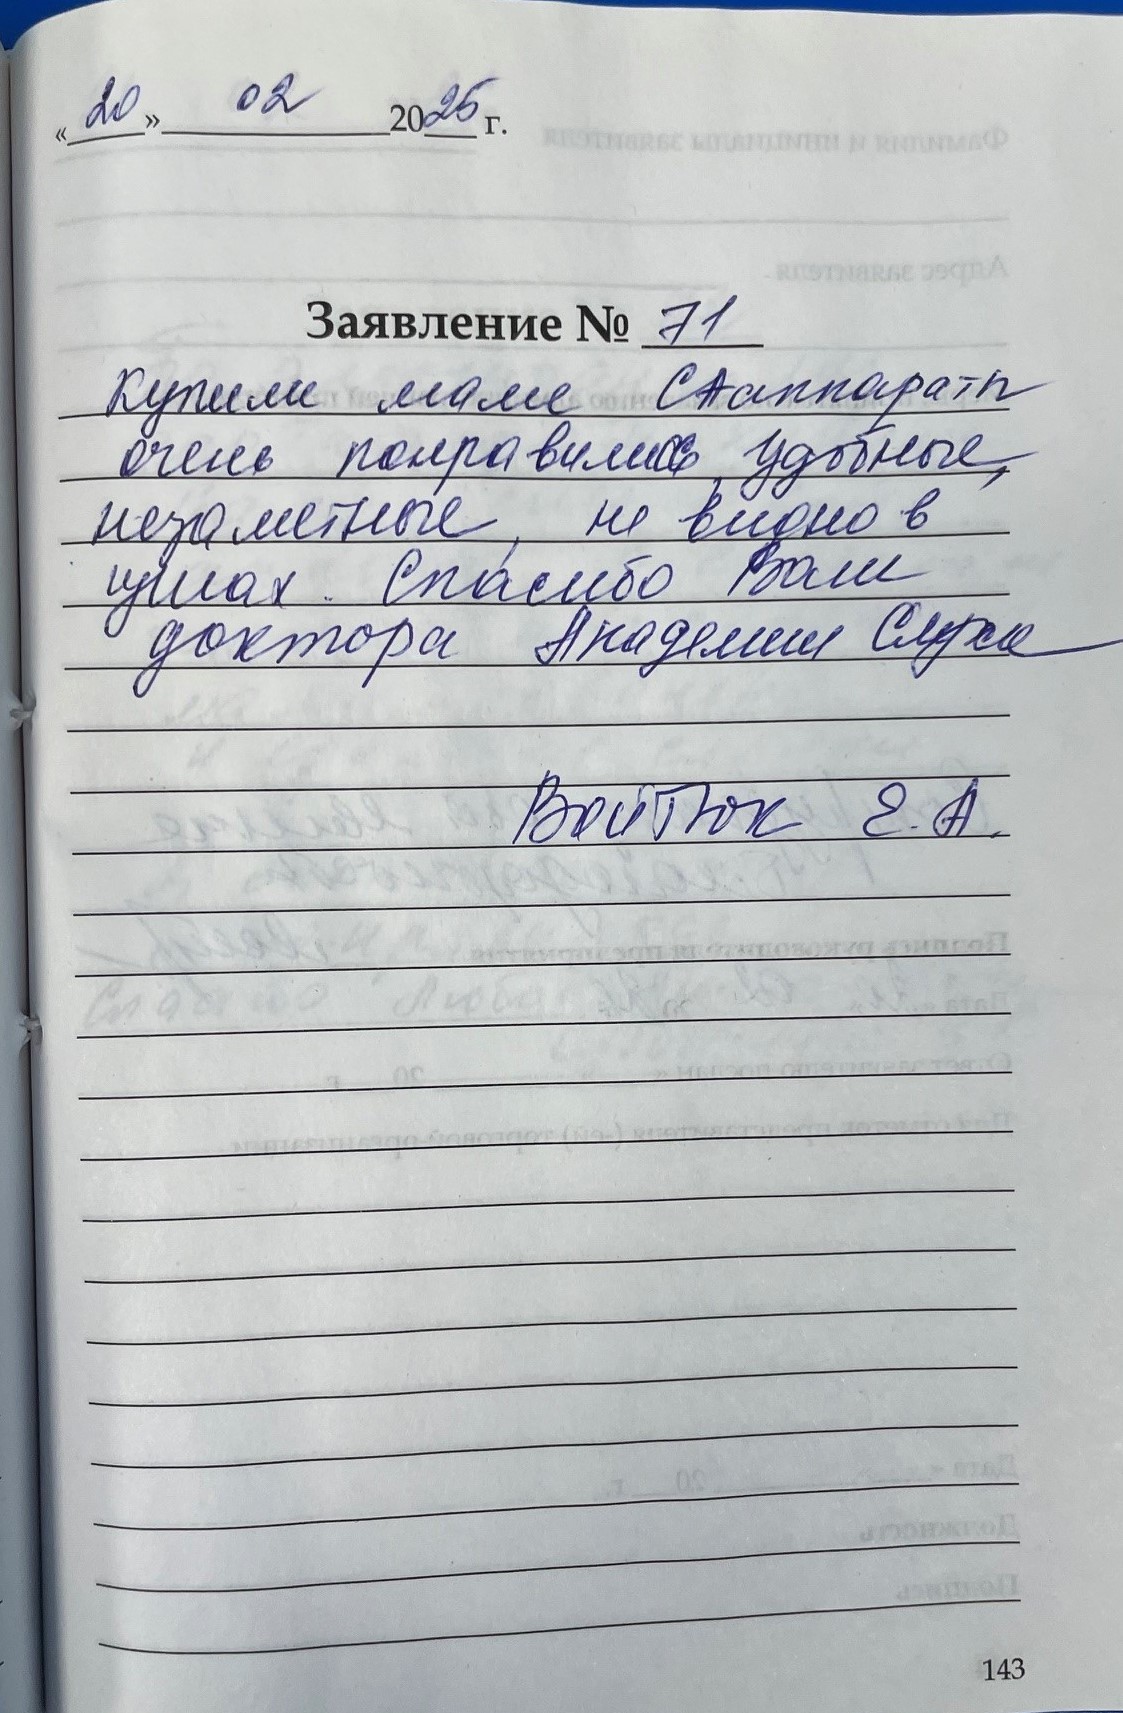 «20» 02 2025 г.
Заявление № 71
Купили маме СА аппараты
очень понравились удобные,
незаметные, не видно в
ушах. Спасибо Вам
доктора Академии Слуха
Войтюк Е. А.
143